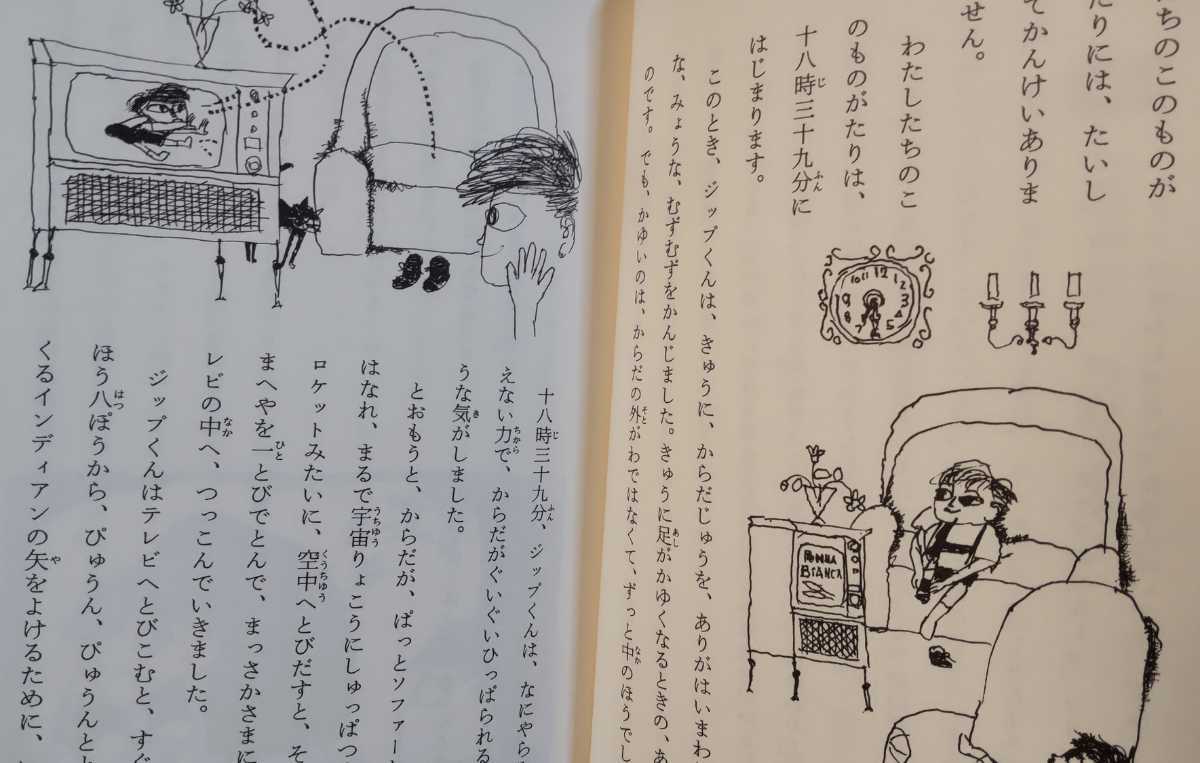 ちのこのものが
たりには、たいし
てかんけいありま
せん。
わたしたちのこ
のものがたりは、
十八時三十九分に
はじまります。
このとき、ジップくんは、きゅうに、からだじゅうを、ありがはいまわ
な、みょうな、むずむずをかんじました。きゅうに足がかゆくなるときの、あ
のです。でも、かゆいのは、からだの外がわではなくて、ずっと中のほうでし
10 11 12 1 2 3 4 5 6 7 8 9
BIANCA
十八時三十九分、ジップくんは、なにやら
えない力で、からだがぐいぐいひっぱられる
うな気がしました。
とおもうと、からだが、ぱっとソファー
はなれ、まるで宇宙りょこうにしゅっぱつ
ロケットみたいに、空中へとびだすと、そ
まへやを一とびでとんで、まっさかさまに
レビの中へ、つっこんでいきました。
ジップくんはテレビへとびこむと、すぐ
ほう八ぽうから、ぴゅうん、ぴゅうんと
くるインディアンの矢をよけるために、